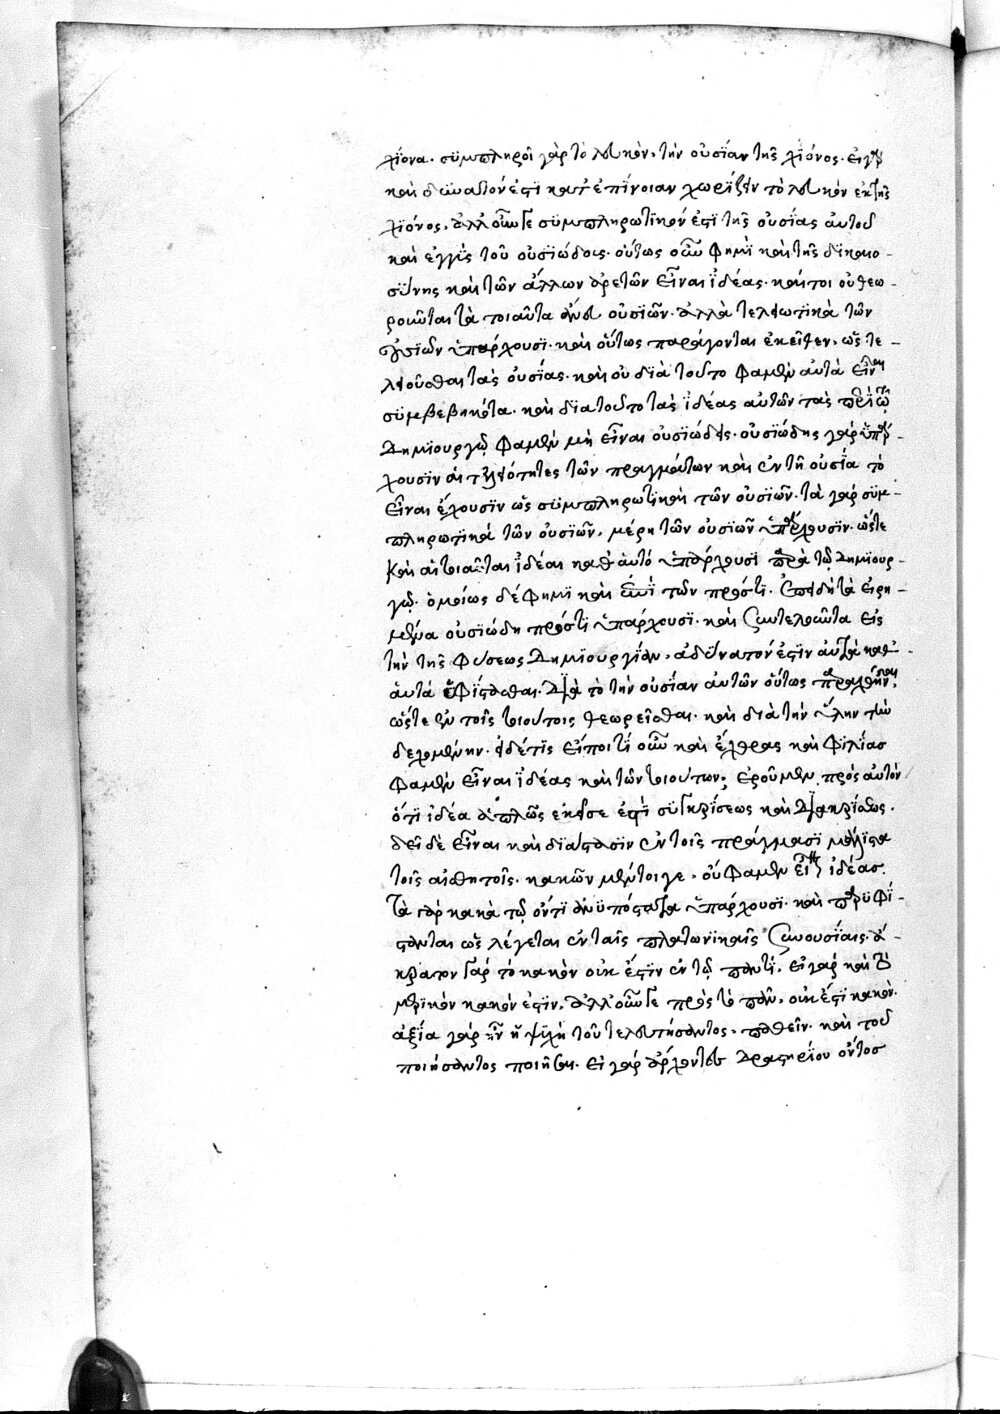 χίονα. συμπληροῖ γὰρ τὸ λευκὸν, τὴν οὐσίαν τῆς χϊόνος. εἰ γὰρ
καὶ δυνατόν ἐστϊ κατ' ἐπίνοιαν χωρίζειν τὸ λευκὸν ἐκ τῆς
χϊόνος, ἀλλ' οὖν γε συμπληρωτϊκόν ἐστϊ τῆς οὐσίας αὐτοῦ
καὶ ἐγγὺς τοῦ οὐσϊώδους. οὕτως οὖν φημὶ καὶ τῆς δϊκαιο-
σύνης καὶ τῶν ἄλλων ἀρετῶν εἶναι ἰδέας. καίτοι οὐ θεω-
ροῦνται τὰ τοιαῦτα ἄνευ οὐσϊῶν. ἀλλὰ τελειωτϊκὰ τῶν
οὐσϊῶν ὑπάρχουσϊ. καὶ οὕτως παράγονται ἐκεῖθεν, ὡς τε-
λειοῦσθαι τὰς οὐσίας. καὶ οὐ δϊὰ τοῦτο φαμὲν αὐτὰ εἶναι
συμβεβηκότα. καὶ δϊατοῦτο τὰς ἰδέας αὐτῶν τὰς παρὰ τῷ
δημϊουργῷ φαμὲν μὴ εἶναι οὐσϊώδεις. οὐσϊώδης γὰρ ὑπάρ-
χουσϊν αἱ τελειότητες τῶν πραγμάτων καὶ ἐν τῇ οὐσίᾳ τὸ
εἶναι ἔχουσϊν ὡς συμπληρωτϊκαὶ τῶν οὐσϊῶν. τὰ γὰρ συμ-
πληρωτϊκὰ τῶν οὐσϊῶν, μέρη τῶν οὐσϊῶν ὑπάρχουσϊν. ὥστε
καὶ αἱ τοιαῦται ἰδέαι καθ' αὑτό ὑπάρχουσϊ παρὰ τῷ δημϊουρ-
γῷ. ὁμοίως δέ φημϊ καὶ ἐπὶ τῶν πρόστϊ. ἐπειδὴ τὰ εἰρη-
μένα οὐσϊώδη πρόστϊ ὑπάρχουσϊ. καὶ συντελοῦντα εἰς
τὴν τῆς φύσεως δημϊουργίαν, ἀδύνατόν ἐστϊν αὐτὰ καθ'
αὑτά ὑφίστασθαι. δϊὰ τὸ τὴν οὐσίαν αὐτῶν οὕτως παραχθῆναι,
ὥστε ἐν τοῖς τοιούτοις θεωρεῖσθαι. καὶ δϊὰ τὴν ὕλην τὴν
δεχομένην. εἰ δέ τϊς εἴποι τί οὖν καὶ ἔχθρας καὶ φϊλίας
φαμὲν εἶναι ἰδέας καὶ τῶν τοιούτων; ἐροῦμεν πρὸς αὐτὸν
ὅτϊ ἰδέα ἁπλῶς ἐκεῖσε ἐστὶ συγκρίσεως καὶ δϊακρίσεως.
δεῖ δὲ εἶναι καὶ δϊάστασϊν ἐν τοῖς πράγμασϊ μάλϊστα
τοῖς αἰσθητοῖς. κακῶν μέντοιγε, οὐ φαμὲν εἶναι ἰδέας.
τὰ γὰρ κακὰ τῷ ὄντϊ ἀνυπόστατα ὑπάρχουσϊ. καὶ παρυφί-
στανται ὡς λέγεται ἐν ταῖς πλατωνϊκαῖς συνουσίαις. ἄ-
κρατον γὰρ τὸ κακὸν οὐκ ἔστϊν ἐν τῷ παντϊ. εἰ γὰρ καὶ τὸ
μερϊκὸν κακόν ἐστϊν, ἀλλ' οὖν γε πρὸς τὸ πᾶν, οὐκ ἔστϊ κακόν.
ἀξία γὰρ ἦν ἡ ψυχὴ τοῦ τελευτήσαντος, παθεῖν. καὶ τοῦ
ποιήσαντος ποιῆσαι. εἰ γὰρ ἄρχοντος δραστηρίου ὄντος